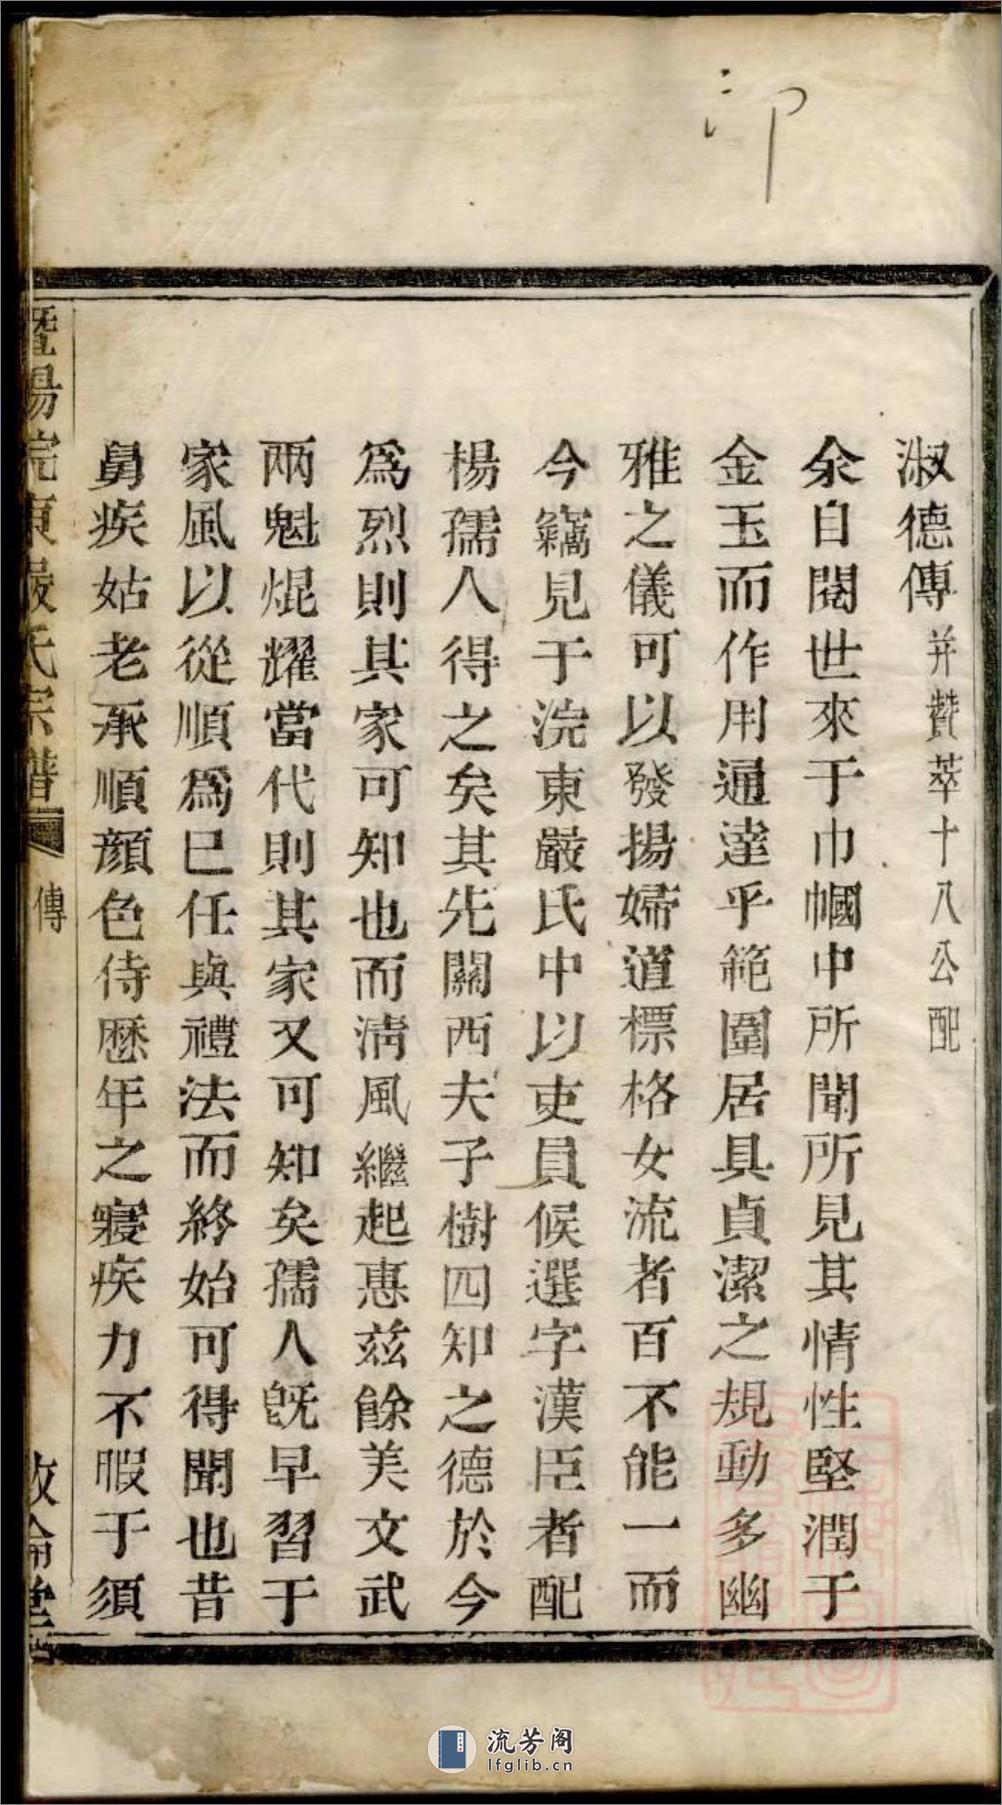 淑德傳并贊萃十八公配
余自閱世來于巾幗中所聞所見其情性堅潤于
金玉而作用通達乎範圍居具貞潔之規動多幽
雅之儀可以發揚婦道標格女流者百不能一而
今竊見于浣東嚴氏中以吏員候選字漢臣者配
楊孺人得之矣其先關西夫子樹四知之德於今
為烈則其家可知也而清風繼起惠兹餘美文武
兩魁焜耀當代則其家又可知矣孺人旣早習于
家風以從順為已任與禮法而終始可得聞也昔
舅疾姑老承順顏色侍歷年之寢疾力不暇于須
暨陽浣東嚴氏宗譜 傳 敦倫堂
流芳阁
lfglib.cn